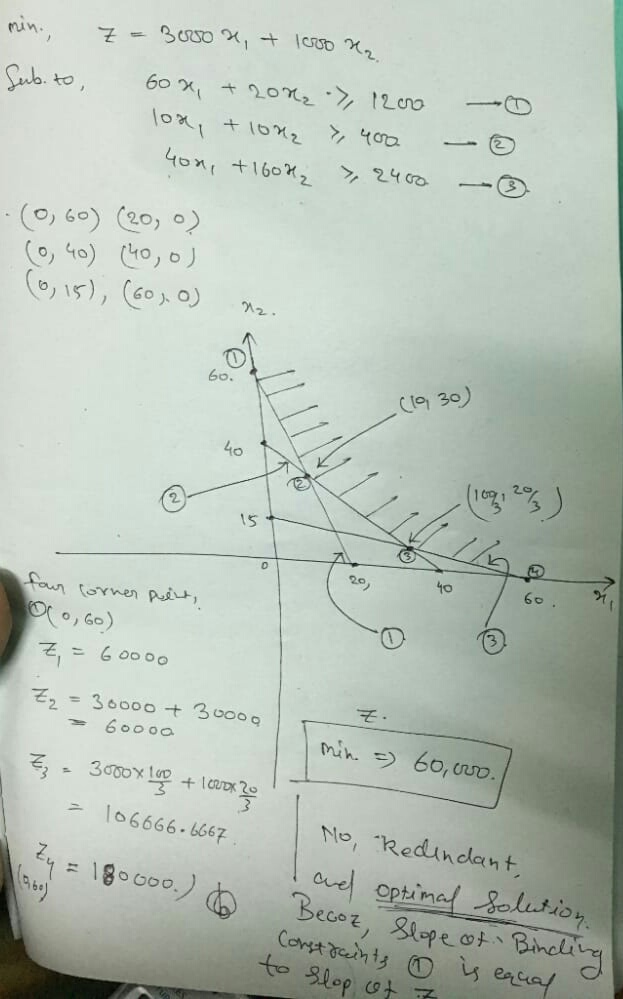 min., Z = 3000 x₁ + 1000 x₂
Sub. to, 60 x₁ + 20x₂ ≥ 1200 — ①
10x₁ + 10x₂ ≥ 400 — ②
40x₁ + 160x₂ ≥ 2400 — ③
(0, 60) (20, 0)
(0, 40) (40, 0)
(0, 15), (60, 0)
x₂.
①
60.
(10, 30)
40
②
②
(100/3, 20/3)
15
③
④
0
20,
40
60.
x₁
①
③
four corner point,
① (0, 60)
Z₁ = 60000
Z₂ = 30000 + 30000
= 60000
Z₃ = 3000 × 100/3 + 1000 × 20/3
= 106666.6667
Z₄ = 180000.)
(0,60)
Z.
min. ⇒ 60,000.
No, Redundant,
and optimal solution.
Becoz, Slope of Binding
Constraints ① is equal
to slop of Z